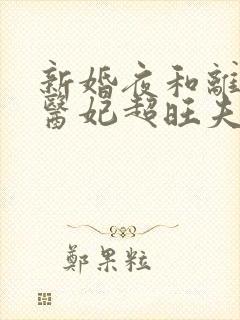 新婚夜和離
醫妃超旺夫
鄭果粒